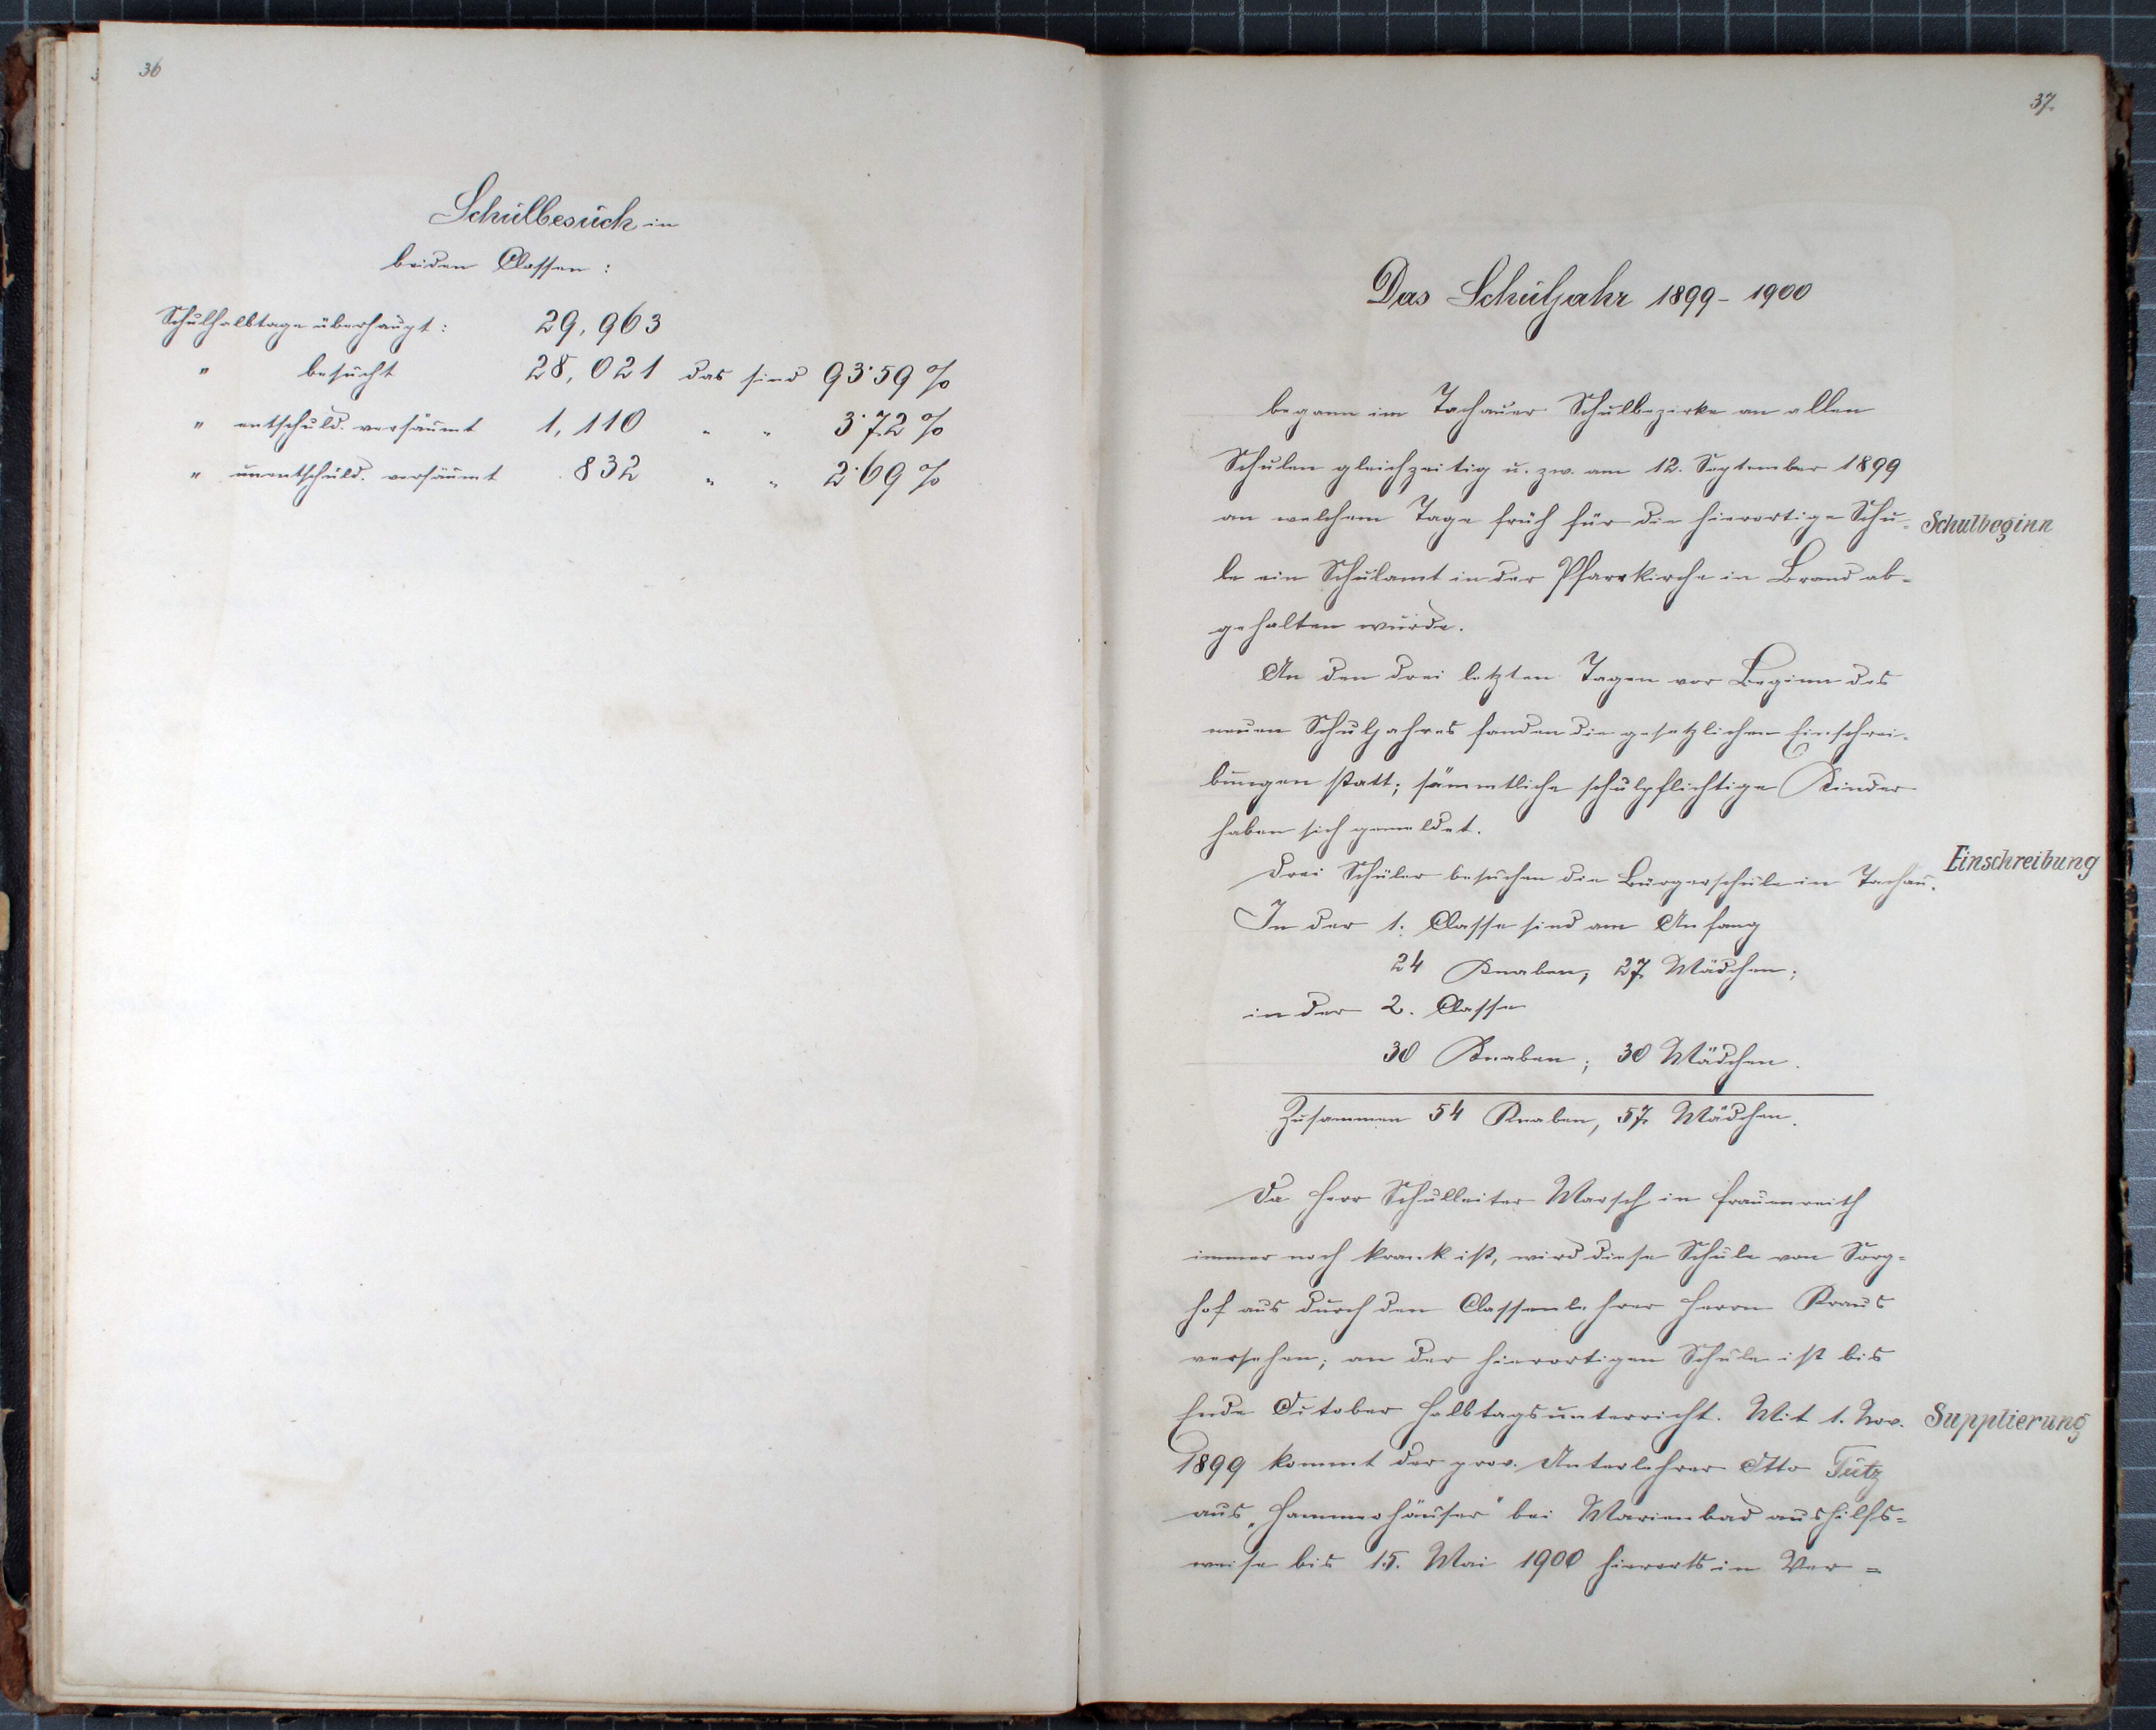 36
Schulbesuch in
beiden Classen:
Schulhalbtage überhaupt: 29,963
" besucht 28,021 das sind 93·59 %
" entschuld. versäumt 1,110 " " 3·72 %
" unentschuld. versäumt 832 " " 2·69 %
37.
Das Schuljahr 1899 - 1900
begann im Tachauer Schulbezirke an allen
Schulen gleichzeitig u. zw. am 12. September 1899
an welchem Tage früh für die hierortige Schu-
Schulbeginn
le ein Schulamt in der Pfarrkirche in Brand ab-
gehalten wurde.
An den drei letzten Tagen vor Beginn des
neuen Schuljahres fanden die gesetzlichen Einschrei-
bungen statt; sämmtliche schulpflichtige Kinder
haben sich gemeldet.
Einschreibung
Drei Schüler besuchen die Bürgerschule in Tachau.
In der 1. Classe sind am Anfang
24 Knaben, 27 Mädchen;
in der 2. Classe
30 Knaben; 30 Mädchen.
Zusammen 54 Knaben, 57 Mädchen.
Da Herr Schulleiter Marsch in Frauenreith
immer noch krank ist, wird diese Schule von Sorg-
hof aus durch den Classenlehrer Herrn Kraus
versehen; an der hierortigen Schule ist bis
Ende October Halbtagsunterricht. Mit 1. Nov.
Supplierung
1899 kommt der prov. Unterlehrer Otto Tütz
aus „Hammerhäuser" bei Marienbad aushilfs-
weise bis 15. Mai 1900 hierorts in Ver-